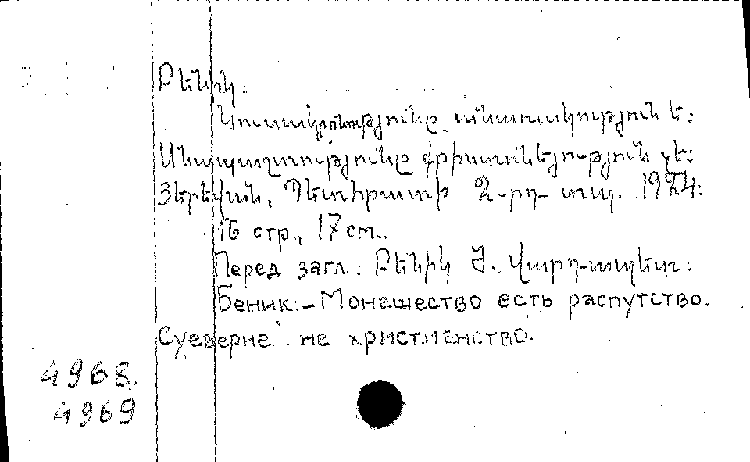 Բենիկ.
Կուսակրօնութիւնը անառակութիւն է:
Անապատութիւնը քրիստոնէութիւն չէ:
Յերեվան, Պետհրատի 2-րդ տպ. 1924:
16 стр., 17 см.
Перед загл.: Բենիկ Ծ. վարդապետ:
Беник.- Монашество есть распутство.
Суеверие не христианство.
4968.
4969